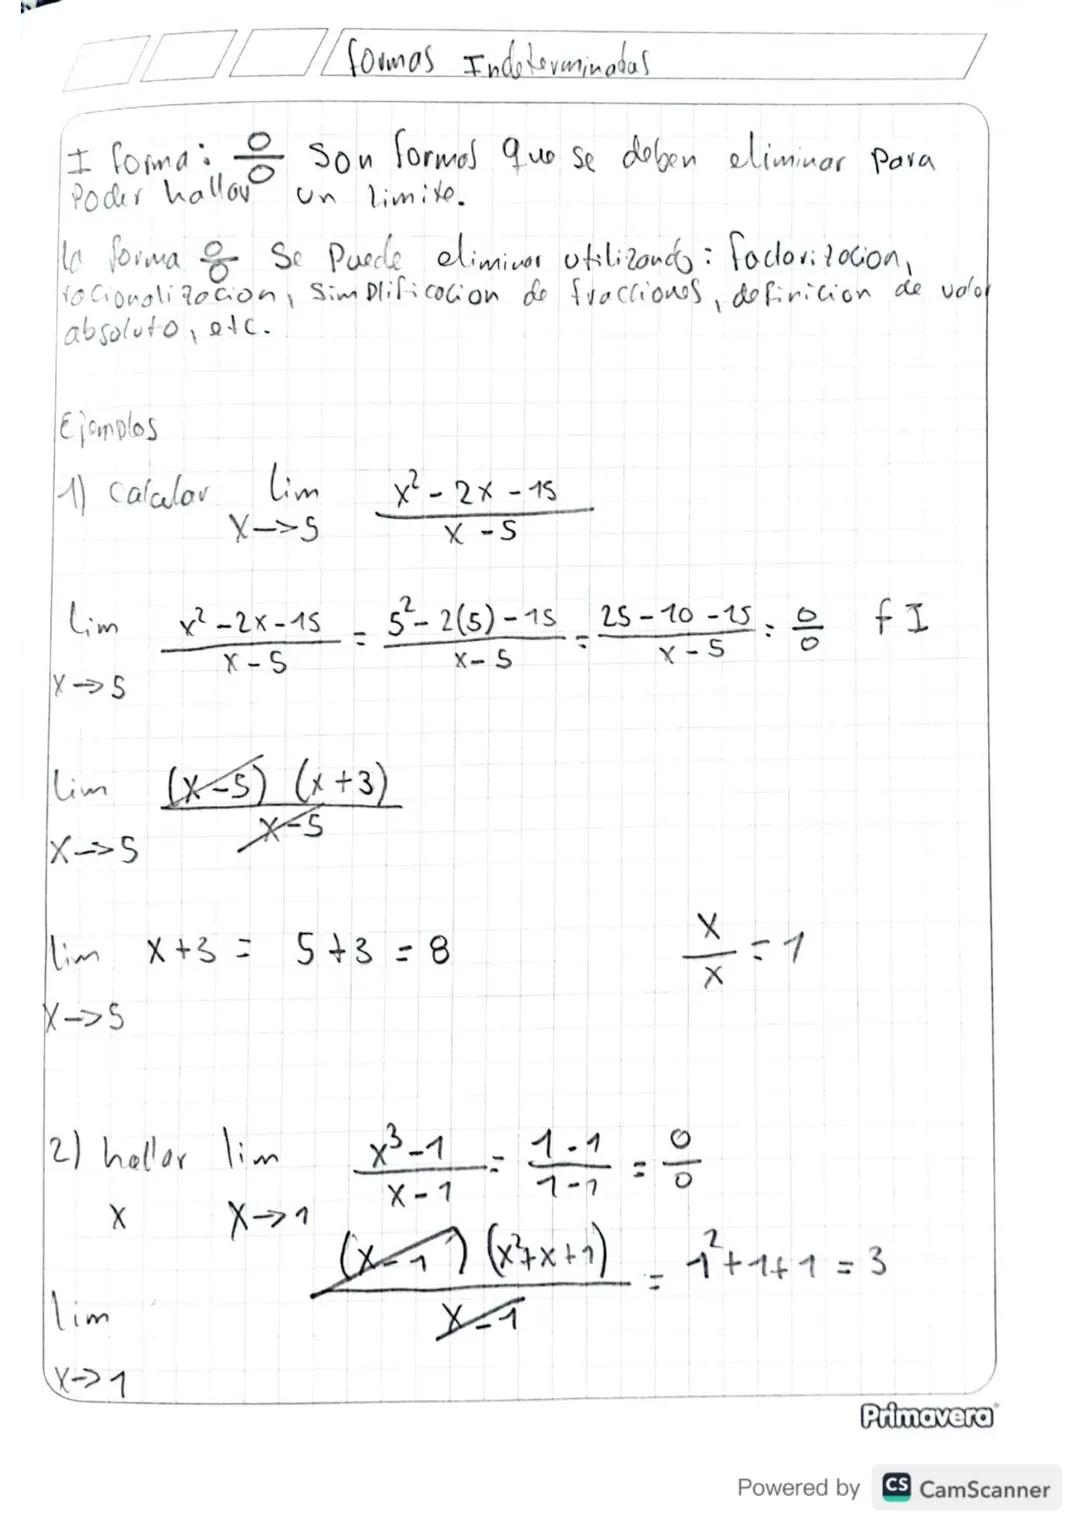 formas Indeterminadas
I forma: 0/0 Son formas que se deben eliminar para
Poder hallar un limite.
la forma 0/0 Se Puede eliminar utilizando: factorizacion,
racionalizacion, Simplificacion de fracciones, definicion de valor
absoluto, etc.
Ejemplos
1) calcular lim x→5 (x² - 2x - 15)/(x - 5)
lim x→5 (x² - 2x - 15)/(x - 5) = (5² - 2(5) - 15)/(x - 5) = (25 - 10 - 15)/(x - 5) = 0/0 f I
lim x→5 (x-5) (x+3)/(x-5)
lim x→5 x+3 = 5+3 = 8
x/x = 1
2) hallar lim x→1 (x³-1)/(x-1) = (1-1)/(1-1) = 0/0
x
lim x→1 (x-1) (x²+x+1)/(x-1) = 1²+1+1 = 3
Primavera
Powered by CS CamScanner